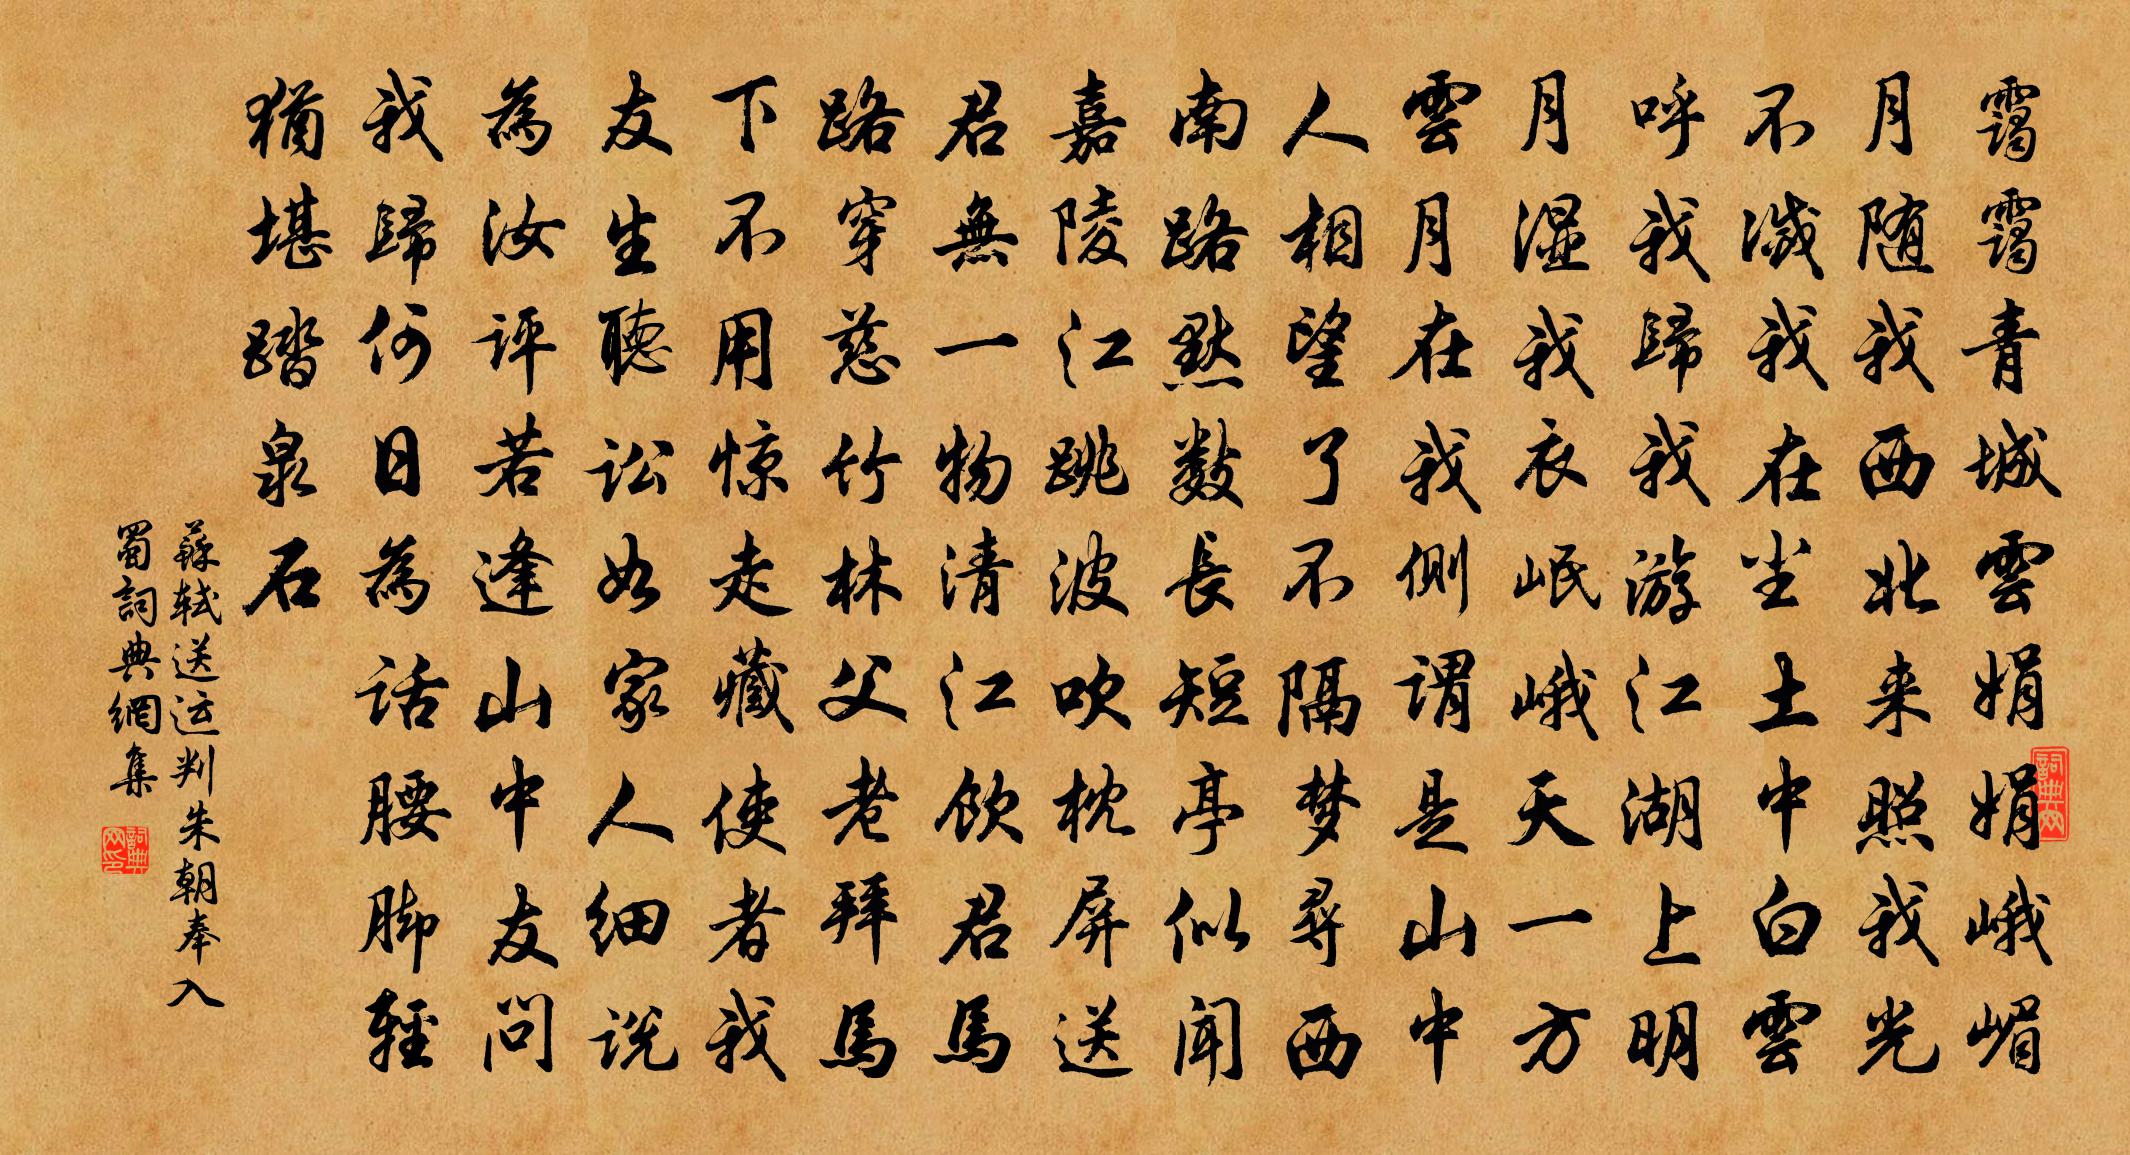 靄靄青城雲娟娟峨嵋
月随我西北来照我光
不減我在尘土中白雲
呼我歸我游江湖上明
月湿我衣岷峨天一方
雲月在我側謂是山中
人相望了不隔梦尋西
南路默數長短亭似聞
嘉陵江跳波吹枕屏送
君無一物清江飲君馬
路穿慈竹林父老拜馬
下不用惊走藏使者我
友生聽訟如家人細説
為汝評若逢山中友問
我歸何日為話腰脚輕
猶堪踏泉石
蘇軾送运判朱朝奉入
蜀詞典網集
詞典网
詞典网印